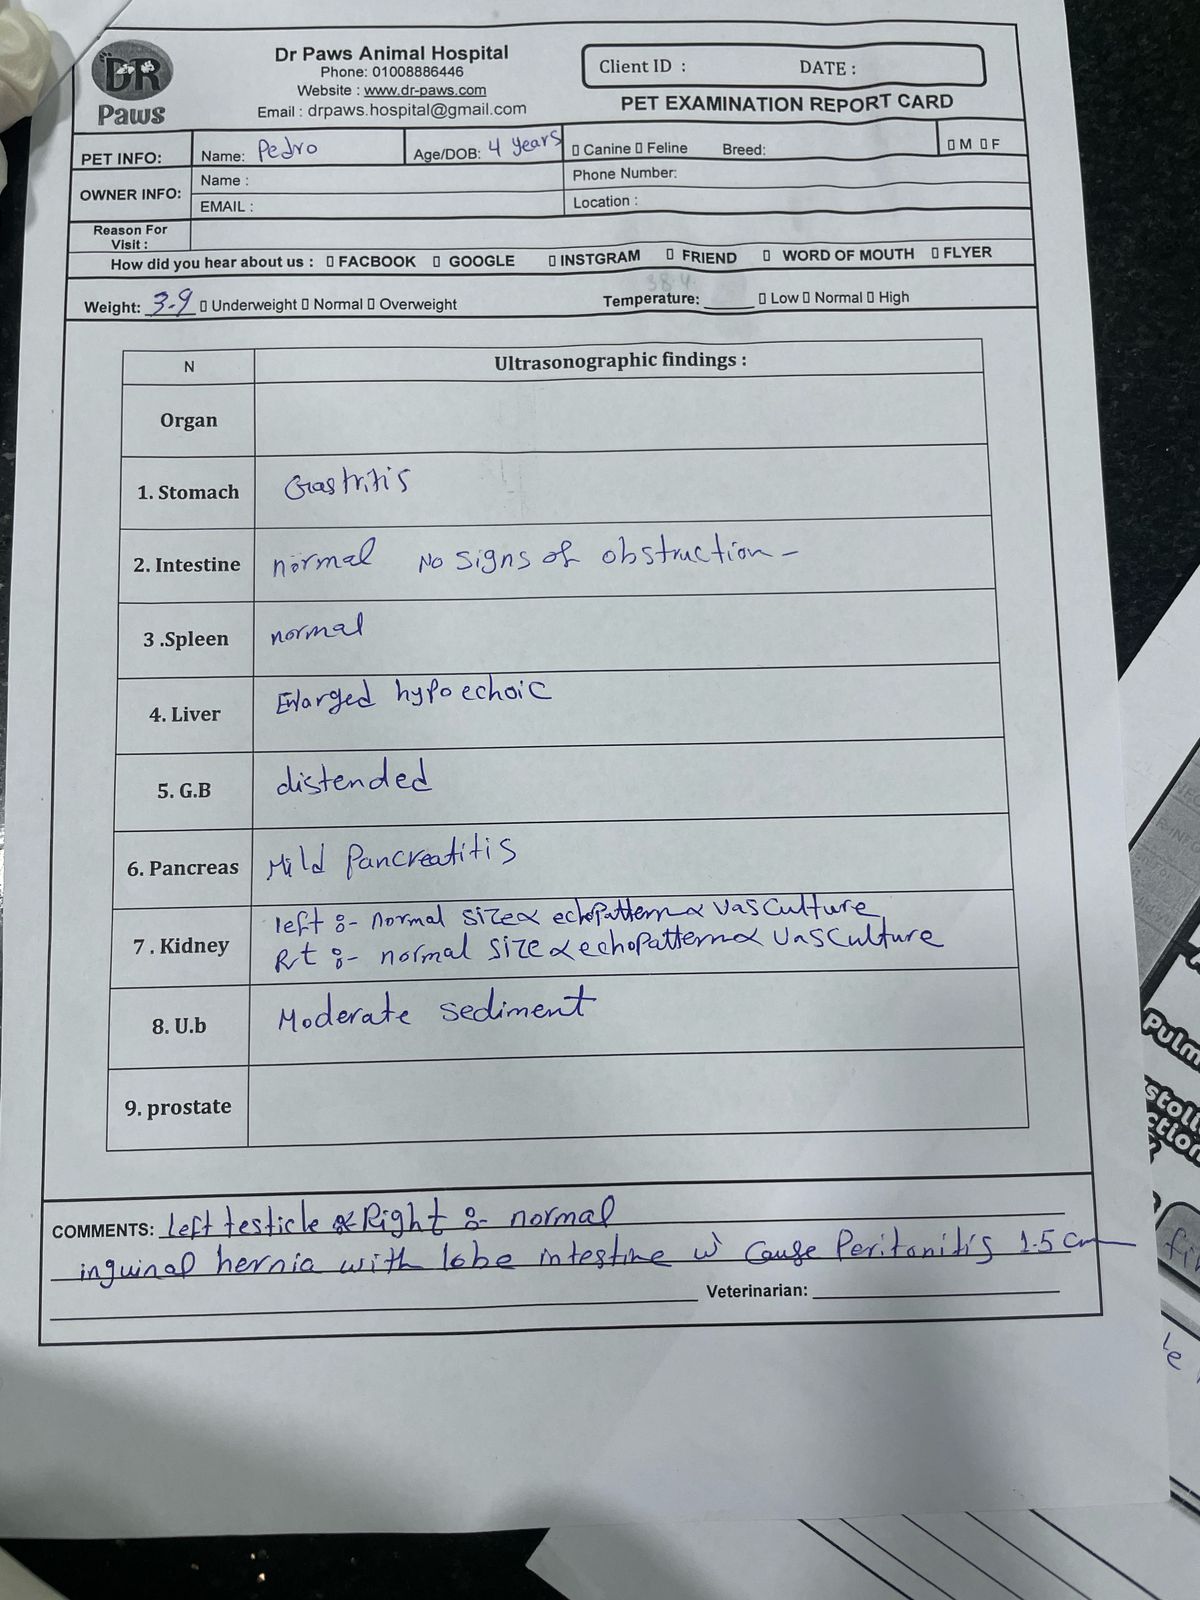 DR
Paws
Dr Paws Animal Hospital
Phone: 01008886446
Website : www.dr-paws.com
Email : drpaws.hospital@gmail.com
Client ID : DATE :
PET EXAMINATION REPORT CARD
PET INFO: Name: Pedro Age/DOB: 4 years ▯ Canine ▯ Feline Breed: ▯ M ▯ F
OWNER INFO: Name : Phone Number:
EMAIL : Location :
Reason For
Visit :
How did you hear about us : ▯ FACBOOK ▯ GOOGLE ▯ INSTGRAM ▯ FRIEND ▯ WORD OF MOUTH ▯ FLYER
Weight: 3.9 ▯ Underweight ▯ Normal ▯ Overweight Temperature: 38.4 ▯ Low ▯ Normal ▯ High
N Ultrasonographic findings :
Organ
1. Stomach Gastritis
2. Intestine normal No signs of obstruction -
3 .Spleen normal
4. Liver Enlarged hypoechoic
5. G.B distended
6. Pancreas Mild Pancreatitis
7 . Kidney left :- normal size & echopattern & vasculture
Rt :- normal size & echopattern & vasculture
8. U.b Moderate sediment
9. prostate
COMMENTS: left testicle & Right :- normal
inguinal hernia with lobe intestine w Cause Peritonitis 1.5 cm
Veterinarian:
Pulm